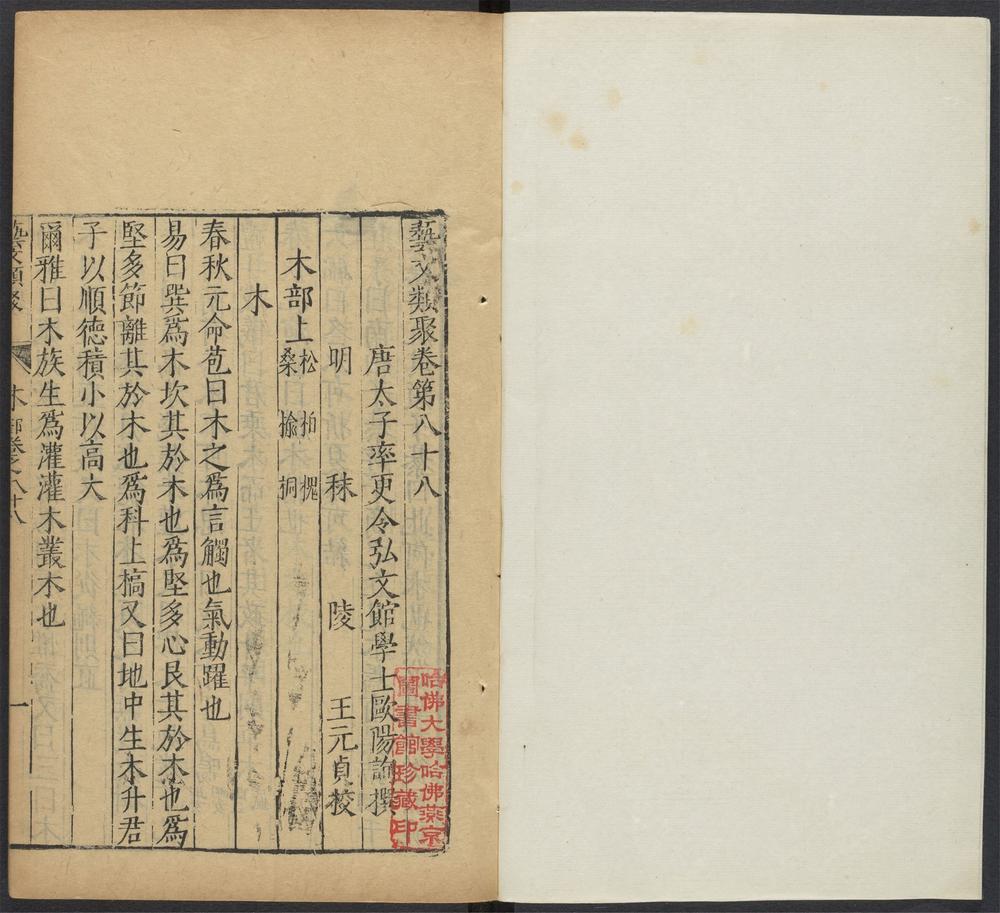 藝文類聚卷第八十八
唐太子率更令弘文館學士歐陽詢撰
明 秣 陵 王元貞校
木部上 松 柏 槐
桑 榆 桐
木
春秋元命苞曰木之爲言觸也氣動躍也
易曰巽爲木坎其於木也爲堅多心艮其於木也爲
堅多節離其於木也爲科上槁又曰地中生木升君
子以順德積小以高大
爾雅曰木族生爲灌灌木叢木也
藝文類聚 木部卷之八十八 一
哈佛大學哈佛燕京
圖書館珍藏印